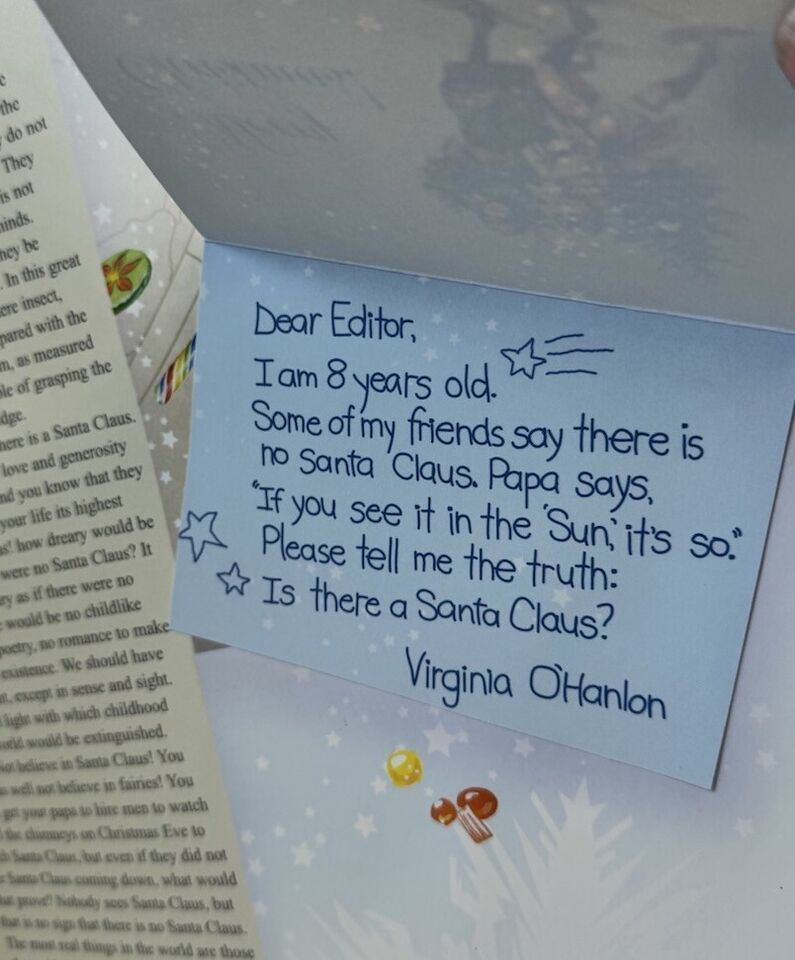 the
do not
They
is not
minds.
they be
. In this great
ere insect,
pared with the
m, as measured
ole of grasping the
dge.
here is a Santa Claus.
love and generosity
nd you know that they
your life its highest
as! how dreary would be
were no Santa Claus? It
ry as if there were no
would be no childlike
poetry, no romance to make
existence. We should have
nt, except in sense and sight.
light with which childhood
orld would be extinguished.
Not believe in Santa Claus! You
as well not believe in fairies! You
get your papa to hire men to watch
the chimneys on Christmas Eve to
Santa Claus, but even if they did not
Santa Claus coming down, what would
prove? Nobody sees Santa Claus, but
that is no sign that there is no Santa Claus.
The most real things in the world are those
Dear Editor,
I am 8 years old.
Some of my friends say there is
no Santa Claus. Papa says,
"If you see it in the 'Sun,' it's so."
Please tell me the truth:
Is there a Santa Claus?
Virginia O'Hanlon